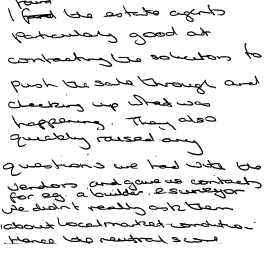 found
I the estate agents
particularly good at
contacting the solicitors to
push the sale through and
checking up what was
happening. They also
quickly raised any
questions we had with the
vendors and gave us contacts
for eg. a builder & surveyor
We didn't really ask them
about local market conditions.
Hence the neutral score